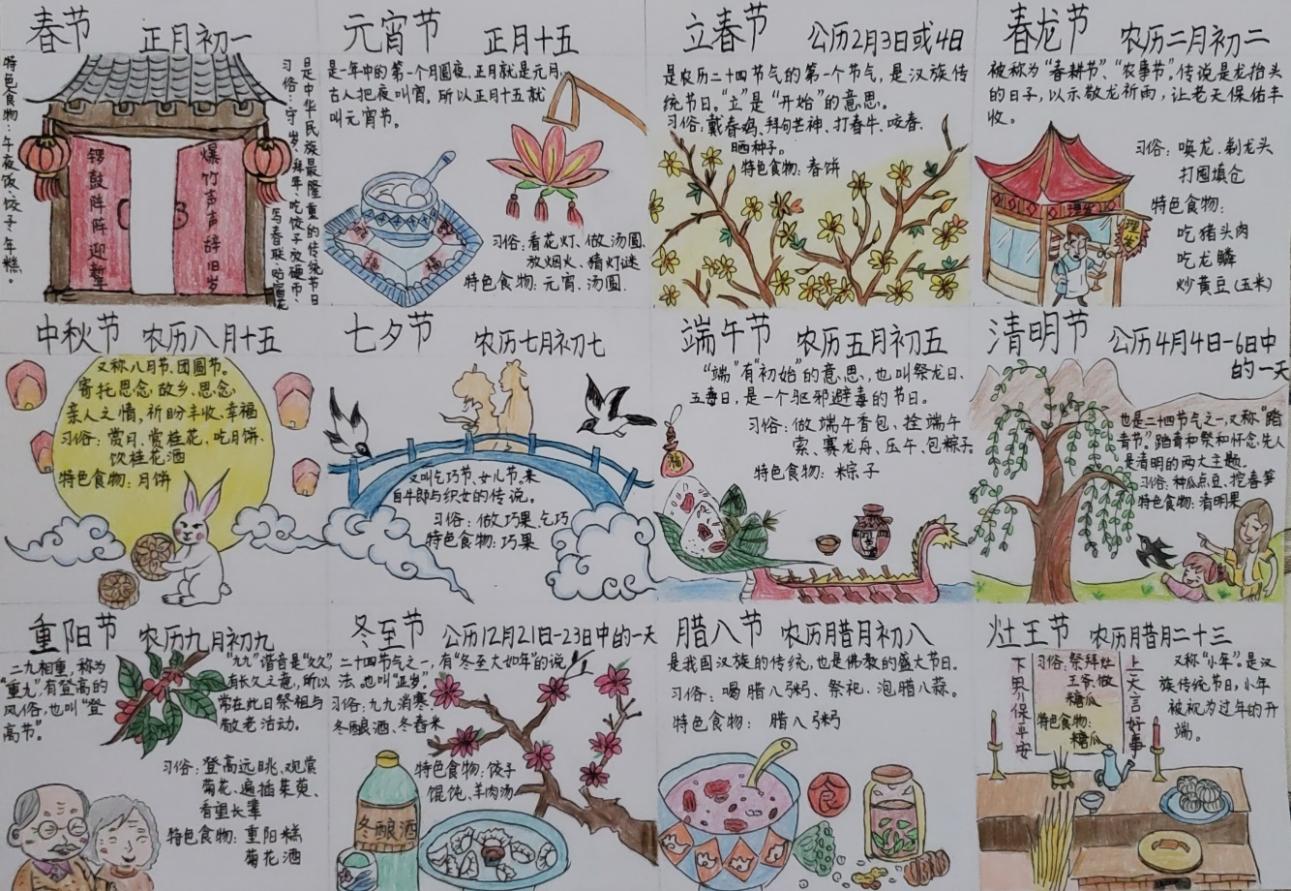 春节 正月初一
特色食物:年夜饭、饺子、年糕。
锣鼓阵阵迎新年
爆竹声声辞旧岁
是中华民族最隆重的传统节日
习俗:守岁、拜年、吃饺子放硬币、
写春联、贴窗花
元宵节 正月十五
是一年中的第一个月圆夜,正月就是元月,
古人把夜叫宵,所以正月十五就
叫元宵节。
习俗:看花灯、做汤圆、
放烟火、猜灯谜
特色食物:元宵、汤圆.
立春节 公历2月3日或4日
是农历二十四节气的第一个节气,是汉族传
统节日。“立”是“开始”的意思。
习俗:戴春鸡、拜句芒神、打春牛、咬春、
晒种子。
特色食物:春饼
春龙节 农历二月初二
被称为“春耕节”、“农事节”,传说是龙抬头
的日子,以示敬龙祈雨,让老天保佑丰
收。
习俗:唤龙、剃龙头
打囤填仓
特色食物:
吃猪头肉
吃龙鳞
炒黄豆(玉米)
理发
中秋节 农历八月十五
又称八月节、团圆节。
寄托思念故乡、思念
亲人之情,祈盼丰收、幸福
习俗:赏月、赏桂花、吃月饼、
饮桂花酒
特色食物:月饼
七夕节 农历七月初七
又叫乞巧节、女儿节。来
自牛郎与织女的传说。
习俗:做巧果、乞巧
特色食物:巧果
端午节 农历五月初五
“端”有“初始”的意思,也叫祭龙日、
五毒日,是一个驱邪避毒的节日。
习俗:做端午香包、拴端午
索、赛龙舟、压午、包粽子
特色食物:粽子
福
清明节 公历4月4日-6日中
的一天
也是二十四节气之一,又称“踏
青节”。踏青和祭和怀念先人
是清明的两大主题。
习俗:种瓜点豆、挖春笋
特色食物:清明果
重阳节 农历九月初九
二九相重,称为
“重九”,有登高的
风俗,也叫“登
高节”。
“九九”谐音是“久久”,
有长久之意,所以
常在此日祭祖与
敬老活动。
习俗:登高远眺、观赏
菊花、遍插茱萸、
看望长辈
特色食物:重阳糕
菊花酒
冬至节 公历12月21日-23日中的一天
二十四节气之一,有“冬至大如年”的说
法。也叫“正岁”。
习俗:九九消寒、
冬酿酒、冬舂米
特色食物:饺子
馄饨、羊肉汤
冬酿酒
腊八节 农历腊月初八
是我国汉族的传统,也是佛教的盛大节日。
习俗:喝腊八粥、祭祀、泡腊八蒜。
特色食物:腊八粥
食
灶王节 农历腊月二十三
下界保平安
习俗:祭拜灶
王爷、做
糖瓜
特色食物:
糖瓜
上天言好事
又称“小年”。是汉
族传统节日,小年
被视为过年的开
端。